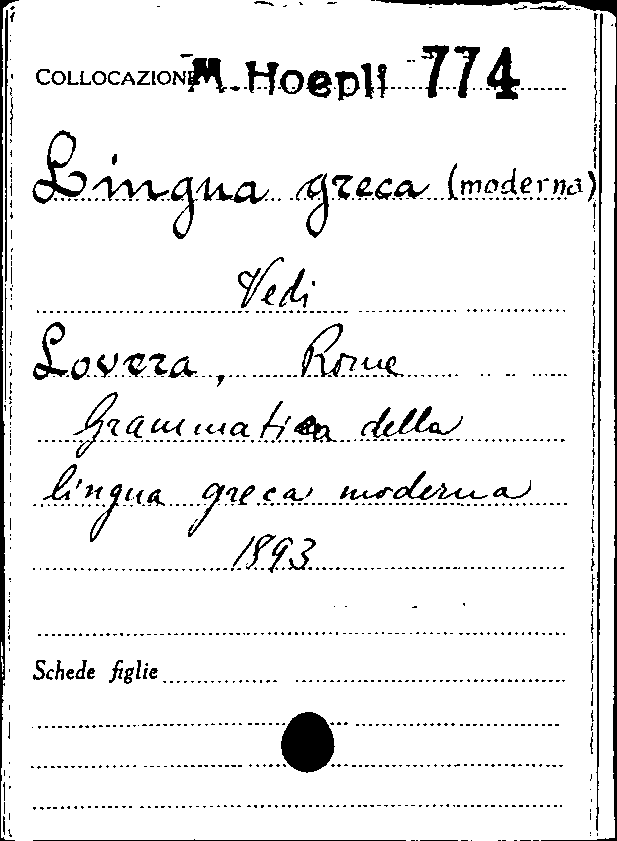 COLLOCAZIONE M. Hoepli 774
Lingua greca (moderna)
Vedi
Lovera, Rome
Grammatica della
lingua greca moderna
1893
Schede figlie